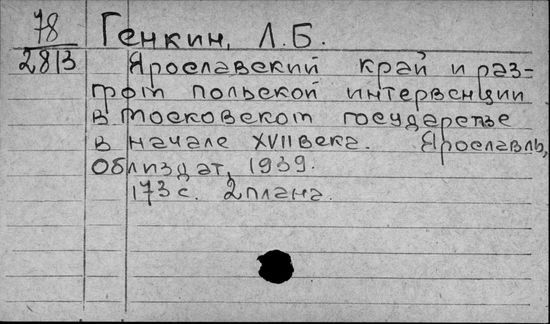 78 Генкин, Л.Б.
2813 Ярославский край и раз-
гром польской интервенции
в Московском государстве
в начале XVII века. Ярославль,
Облиздат, 1939.
173 с. 2 плана.